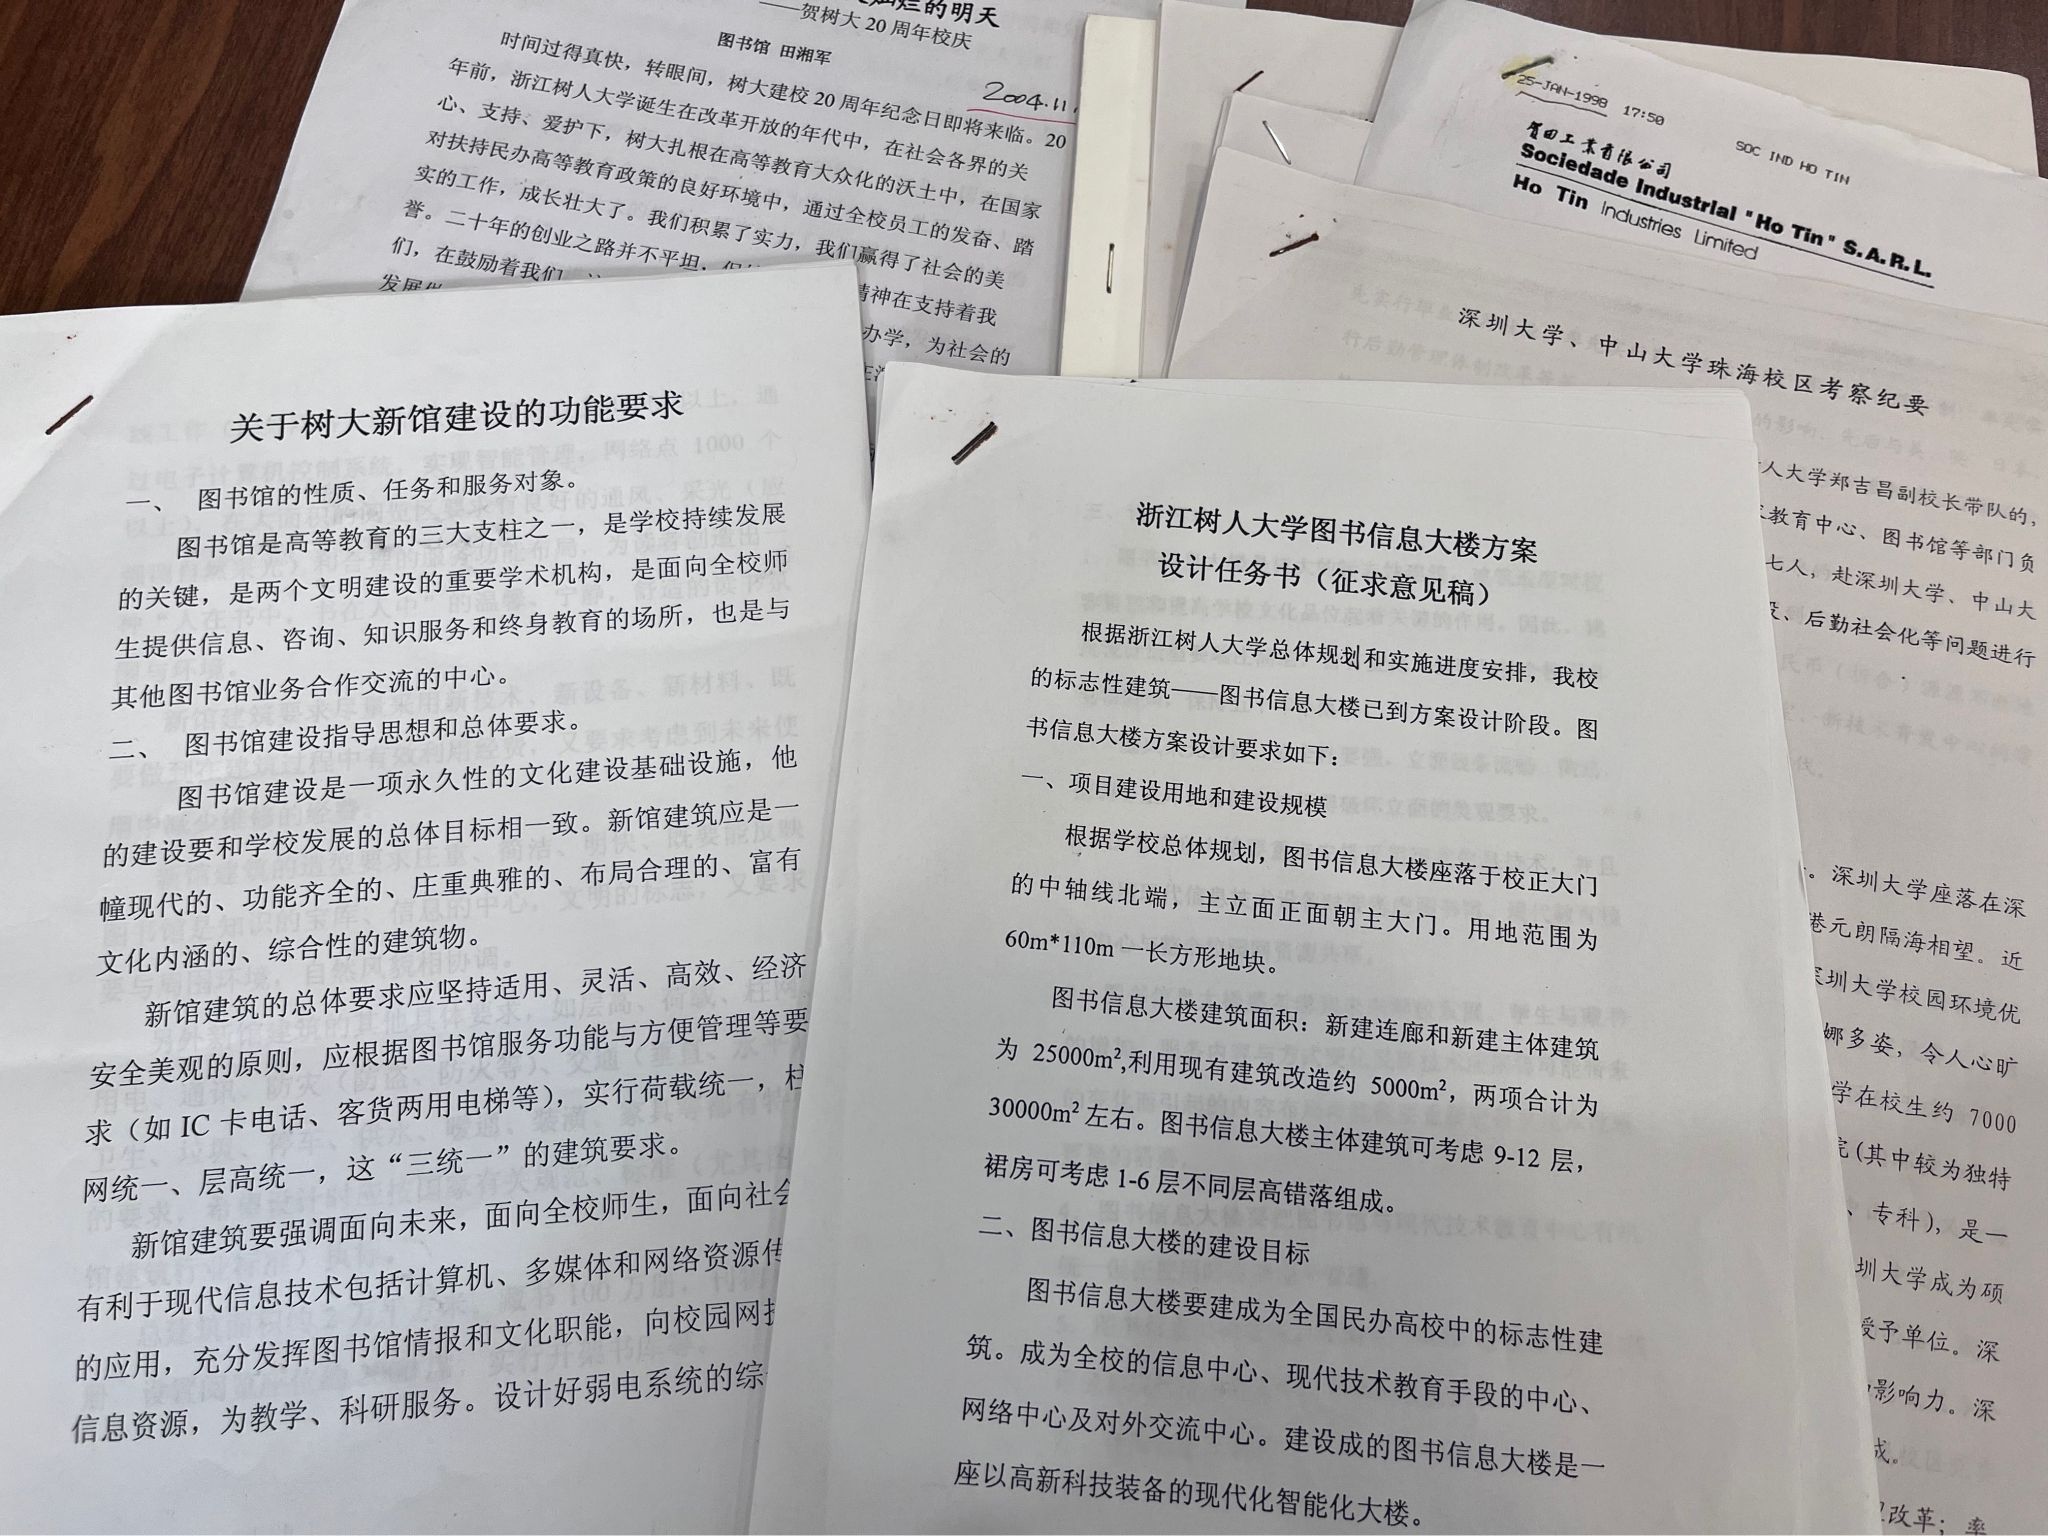 灿烂的明天
——贺树大 20 周年校庆
图书馆 田湘军
2004.11
时间过得真快，转眼间，树大建校 20 周年纪念日即将来临。20
年前，浙江树人大学诞生在改革开放的年代中，在社会各界的关
心、支持、爱护下，树大扎根在高等教育大众化的沃土中，在国家
对扶持民办高等教育政策的良好环境中，通过全校员工的发奋、踏
实的工作，成长壮大了。我们积累了实力，我们赢得了社会的美
誉。二十年的创业之路并不平坦，
们，在鼓励着我们 精神在支持着我
发展 办学，为社会的
关于树大新馆建设的功能要求
一、 图书馆的性质、任务和服务对象。
图书馆是高等教育的三大支柱之一，是学校持续发展
的关键，是两个文明建设的重要学术机构，是面向全校师
生提供信息、咨询、知识服务和终身教育的场所，也是与
其他图书馆业务合作交流的中心。
二、 图书馆建设指导思想和总体要求。
图书馆建设是一项永久性的文化建设基础设施，他
的建设要和学校发展的总体目标相一致。新馆建筑应是一
幢现代的、功能齐全的、庄重典雅的、布局合理的、富有
文化内涵的、综合性的建筑物。
新馆建筑的总体要求应坚持适用、灵活、高效、经济
安全美观的原则，应根据图书馆服务功能与方便管理等要
求（如 IC 卡电话、客货两用电梯等），实行荷载统一，柱
网统一、层高统一，这“三统一”的建筑要求。
新馆建筑要强调面向未来，面向全校师生，面向社会
有利于现代信息技术包括计算机、多媒体和网络资源传
的应用，充分发挥图书馆情报和文化职能，向校园网
信息资源，为教学、科研服务。设计好弱电系统的综
浙江树人大学图书信息大楼方案
设计任务书（征求意见稿）
根据浙江树人大学总体规划和实施进度安排，我校
的标志性建筑——图书信息大楼已到方案设计阶段。图
书信息大楼方案设计要求如下：
一、项目建设用地和建设规模
根据学校总体规划，图书信息大楼座落于校正大门
的中轴线北端，主立面正面朝主大门。用地范围为
60m*110m 一长方形地块。
图书信息大楼建筑面积：新建连廊和新建主体建筑
为 25000m²,利用现有建筑改造约 5000m²，两项合计为
30000m² 左右。图书信息大楼主体建筑可考虑 9-12 层，
裙房可考虑 1-6 层不同层高错落组成。
二、图书信息大楼的建设目标
图书信息大楼要建成为全国民办高校中的标志性建
筑。成为全校的信息中心、现代技术教育手段的中心、
网络中心及对外交流中心。建设成的图书信息大楼是一
座以高新科技装备的现代化智能化大楼。
25-JAN-1998 17:50 SOC IND HO TIN
賀田工業有限公司
Sociedade Industrial "Ho Tin" S.A.R.L.
Ho Tin Industries Limited
深圳大学、中山大学珠海校区考察纪要
人大学郑吉昌副校长带队的，
教育中心、图书馆等部门负
七人，赴深圳大学、中山大
设、后勤社会化等问题进行
。深圳大学座落在深
港元朗隔海相望。近
深圳大学校园环境优
娜多姿，令人心旷
学在校生约 7000
(其中较为独特
、专科)，是一
圳大学成为硕
授予单位。深
影响力。深
成。
改革；率